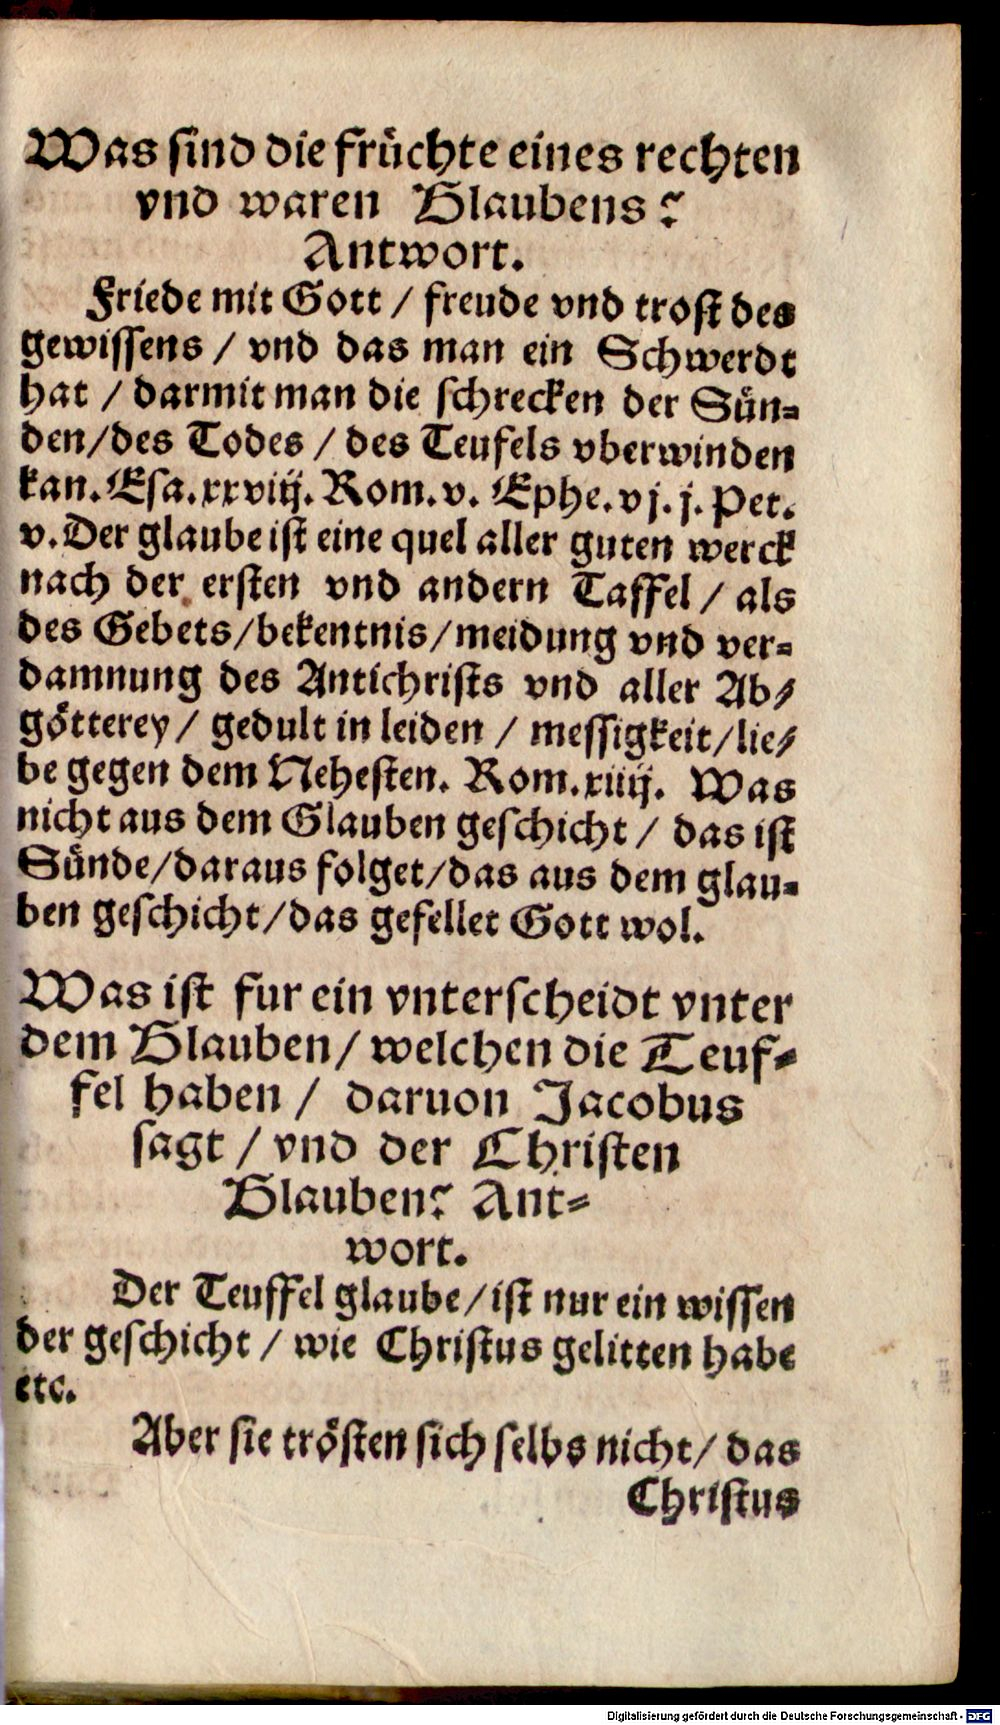 Was sind die früchte eines rechten
vnd waren Glaubens?
Antwort.
Friede mit Gott / freude vnd trost des
gewissens / vnd das man ein Schwerdt
hat / darmit man die schrecken der Sün-
den/des Todes / des Teufels vberwinden
kan. Esa. xxviij. Rom. v. Ephe. vj. j. Pet.
v. Der glaube ist eine quel aller guten werck
nach der ersten vnd andern Taffel / als
des Gebets/bekentnis/meidung vnd ver-
damnung des Antichrists vnd aller Ab-
götterey / gedult in leiden / messigkeit/lie-
be gegen dem Nehesten. Rom. xiiij. Was
nicht aus dem Glauben geschicht / das ist
Sünde/daraus folget/das aus dem glau-
ben geschicht/das gefellet Gott wol.
Was ist fur ein vnterscheidt vnter
dem Glauben/ welchen die Teuf-
fel haben / daruon Jacobus
sagt / vnd der Christen
Glauben? Ant-
wort.
Der Teuffel glaube/ist nur ein wissen
der geschicht / wie Christus gelitten habe
etc.
Aber sie trösten sich selbs nicht/ das
Christus
Digitalisierung gefördert durch die Deutsche Forschungsgemeinschaft - DFG